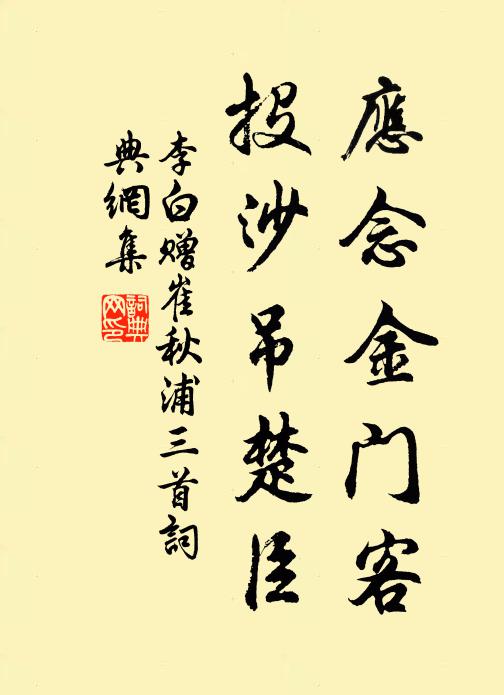 應念金门客
投沙吊楚臣
李白赠崔秋浦三首詞
典網集
詞典
网印